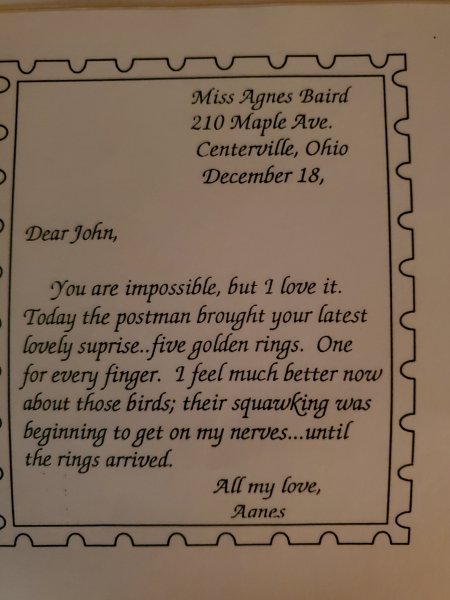 Miss Agnes Baird
210 Maple Ave.
Centerville, Ohio
December 18,
Dear John,
You are impossible, but I love it.
Today the postman brought your latest
lovely suprise..five golden rings. One
for every finger. I feel much better now
about those birds; their squawking was
beginning to get on my nerves...until
the rings arrived.
All my love,
Agnes